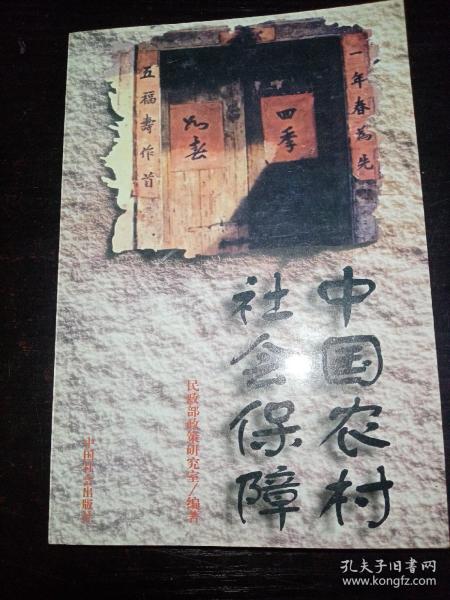 一年春为先
四季
如春
五福寿作首
中国农村
社会保障
民政部政策研究室/编著
中国社会出版社
孔夫子旧书网
www.kongfz.com